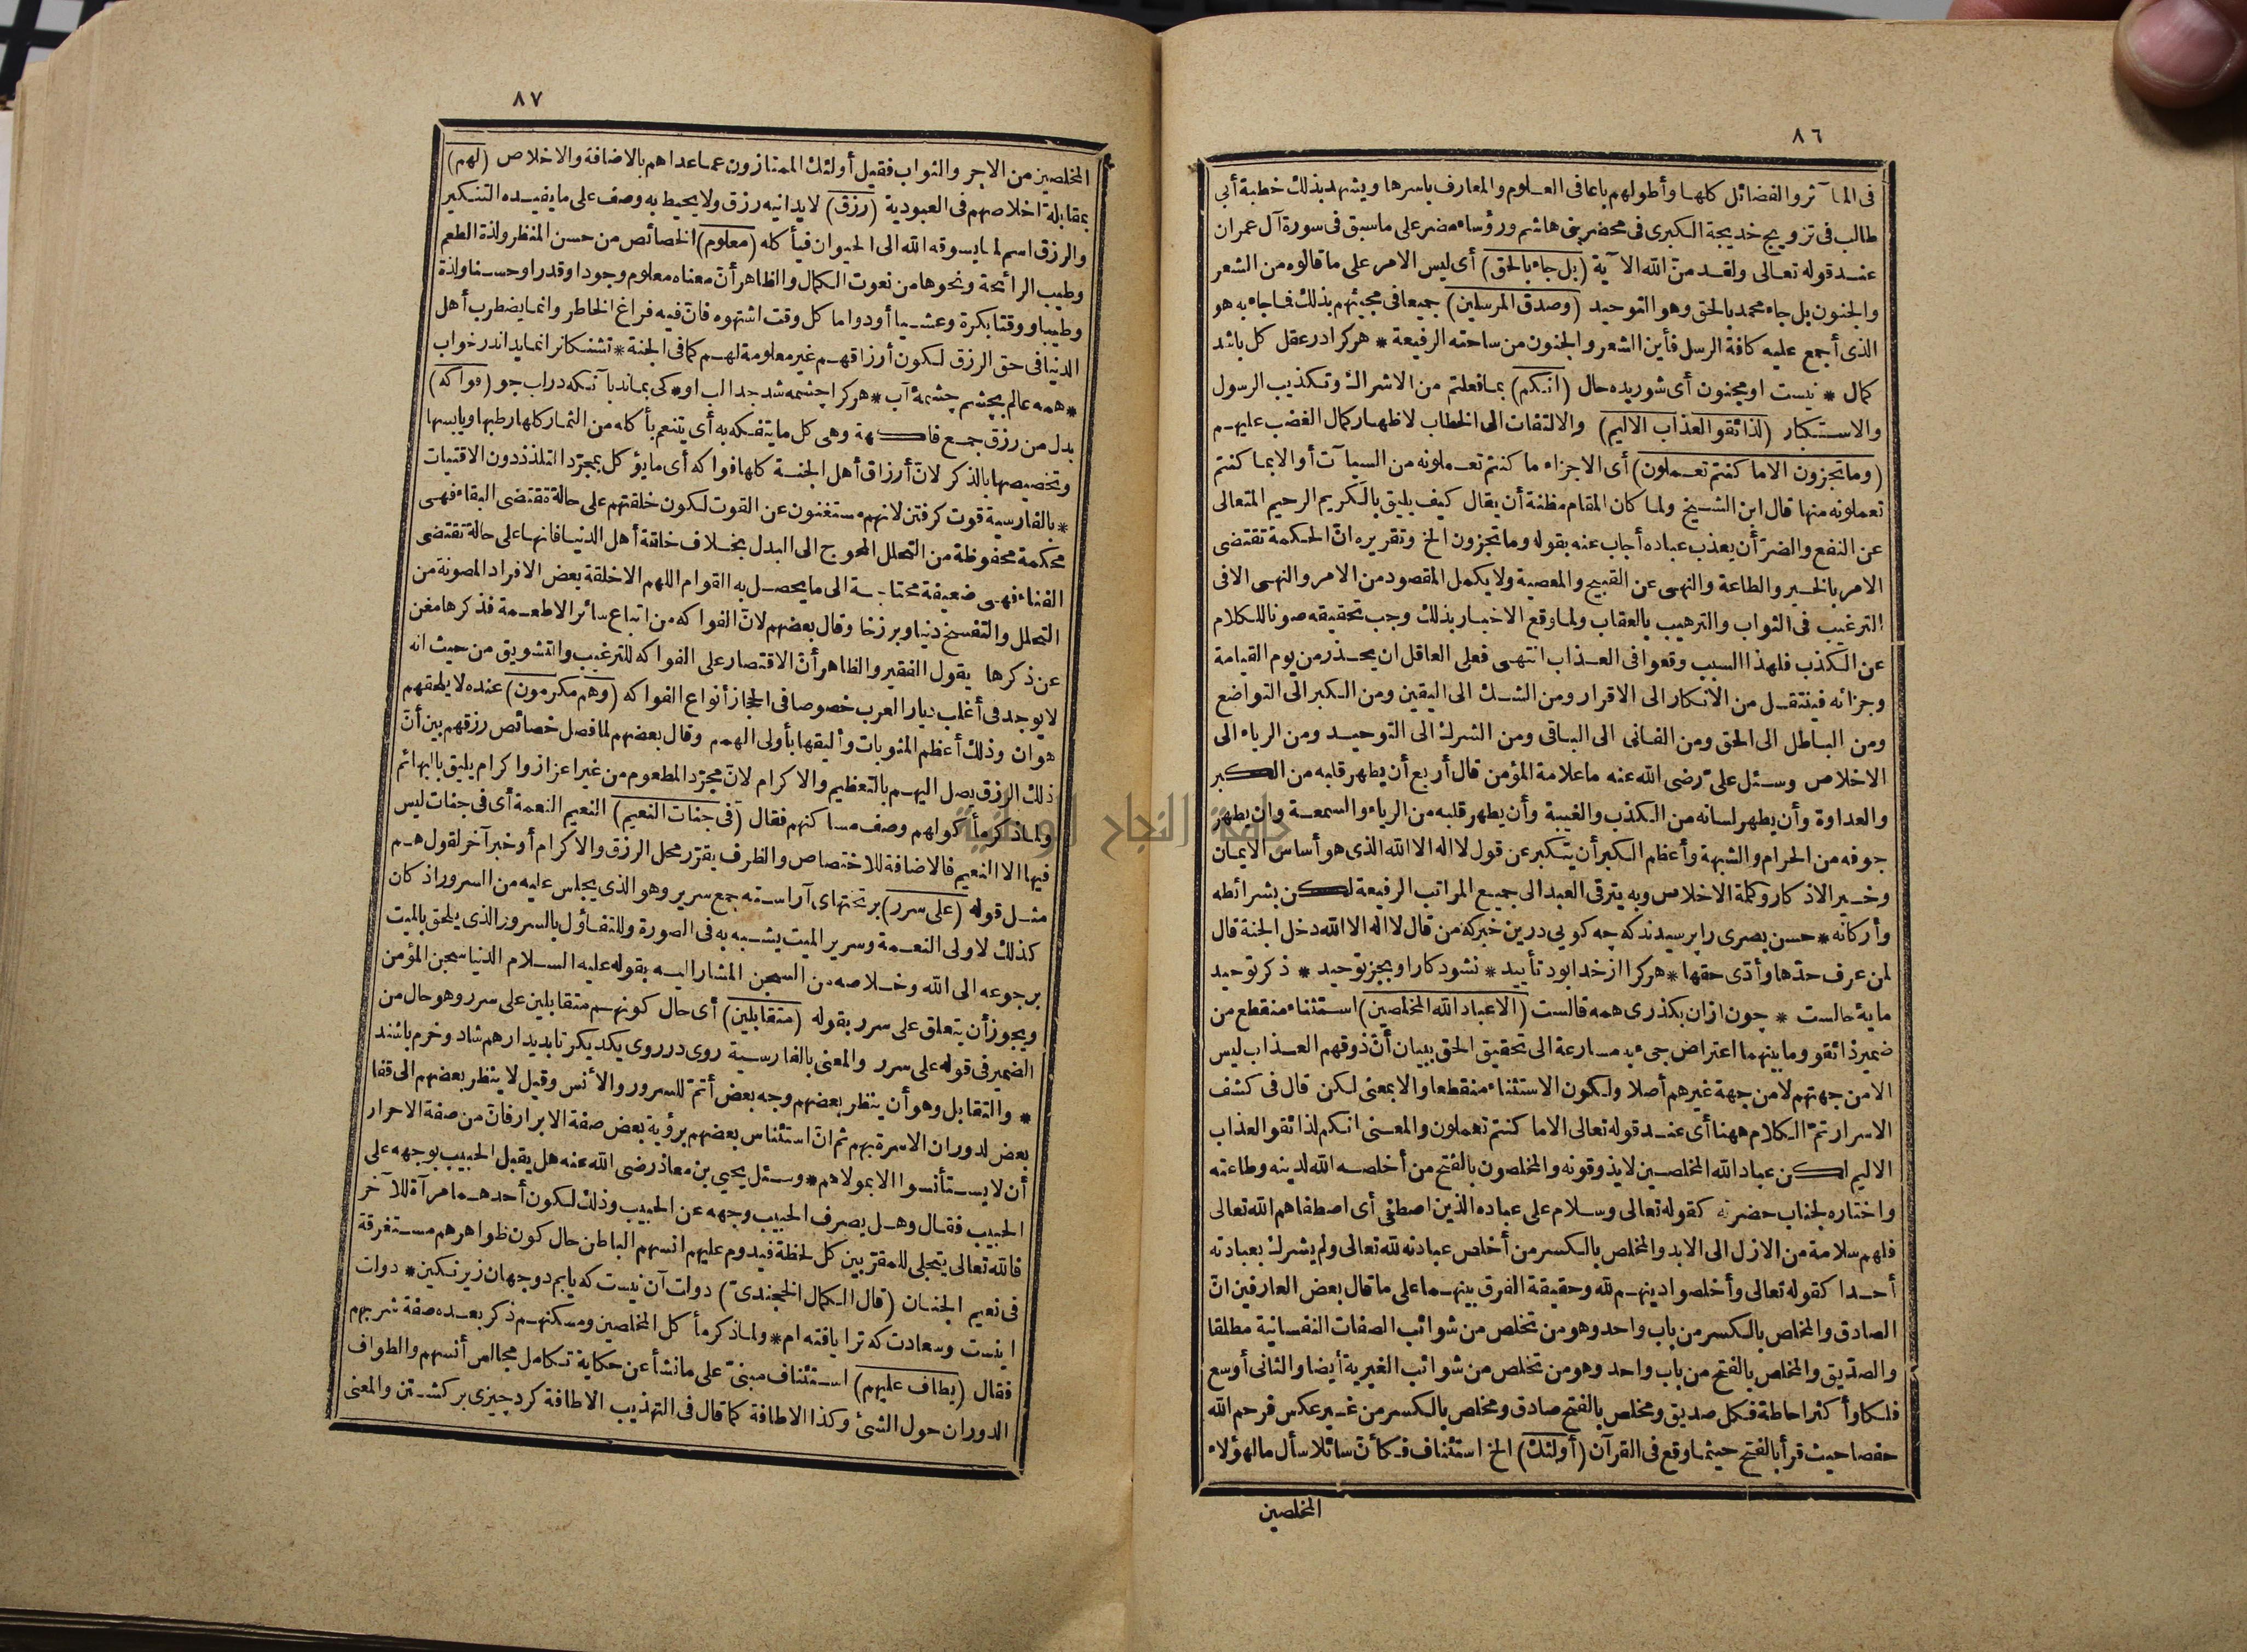 ٨٦
فى المآثر والفضائل كلها وأطولهم باعا فى العلوم والمعارف باسرها ويشهد بذلك خطبة أبى
طالب فى تزويج خديجة الكبرى فى محضر بنى هاشم ورؤساء مضر على ما سبق فى سورة آل عمران
عند قوله تعالى ولقد منّ الله الآية (بل جاء بالحق) أى ليس الامر على ما قالوه من الشعر
والجنون بل جاء محمد بالحق وهو التوحيد (وصدق المرسلين) جميعا فى مجيئهم بذلك فما جاء به هو
الذى أجمع عليه كافة الرسل فأين الشعر والجنون من ساحته الرفيعة * هركرا در عقل كل باشد
كمال * نيست او مجنون أى شوريده حال (انكم) بما فعلتم من الاشراك وتكذيب الرسول
والاستكبار (لذائقو العذاب الاليم) والالتفات الى الخطاب لاظهار كمال الغضب عليهم
(وما تجزون الا ما كنتم تعملون) أى الا جزاء ما كنتم تعملونه من السيآت أو الا بما كنتم
تعملونه منها قال ابن الشيخ ولما كان المقام مظنة أن يقال كيف يليق بالكريم الرحيم المتعالى
عن النفع والضرّ أن يعذب عباده أجاب عنه بقوله وما تجزون الخ وتقريره انّ الحكمة تقتضى
الامر بالخير والطاعة والنهى عن القبيح والمعصية ولا يكمل المقصود من الامر والنهى الا فى
الترغيب فى الثواب والترهيب بالعقاب ولما وقع الاخبار بذلك وجب تحقيقه صونا للكلام
عن الكذب فلهذا السبب وقعوا فى العذاب انتهى فعلى العاقل ان يحذر من يوم القيامة
وجزائه فينتقل من الانكار الى الاقرار ومن الشك الى اليقين ومن الكبر الى التواضع
ومن الباطل الى الحق ومن الفانى الى الباقى ومن الشرك الى التوحيد ومن الرياء الى
الاخلاص وسئل علىّ رضى الله عنه ما علامة المؤمن قال أربع أن يطهر قلبه من الكبر
والعداوة وأن يطهر لسانه من الكذب والغيبة وأن يطهر قلبه من الرياء والسمعة وان يطهر
جوفه من الحرام والشبهة وأعظم الكبر أن يتكبر عن قول لا اله الا الله الذى هو أساس الايمان
وخير الاذكار وكلمة الاخلاص وبه يترقى العبد الى جميع المراتب الرفيعة لكن بشرائطه
وأركانه * حسن بصرى را پرسيدند كه چه كويى درين خبر كه من قال لا اله الا الله دخل الجنة قال
لمن عرف حدّها وأدّى حقها * هركرا از خدا بود تأييد * نشود كار او بجز توحيد * ذكر توحيد
مايهٔ حالست * چون ازان بكذرى همه قالست (الا عباد الله المخلصين) استثناء منقطع من
ضمير ذائقو وما بينهما اعتراض جىء به مسارعة الى تحقيق الحق ببيان أنّ ذوقهم العذاب ليس
الا من جهتهم لا من جهة غيرهم أصلا ولكون الاستثناء منقطعا والا بمعنى لكن قال فى كشف
الاسرار تمّ الكلام ههنا أى عند قوله تعالى الا ما كنتم تعملون والمعنى انكم لذائقو العذاب
الاليم لكن عباد الله المخلصين لا يذوقونه والمخلصون بالفتح من أخلصه الله لدينه وطاعته
واختاره لجناب حضرته كقوله تعالى وسلام على عباده الذين اصطفى أى اصطفاهم الله تعالى
فلهم سلامة من الازل الى الابد والمخلص بالكسر من أخلص عبادته لله تعالى ولم يشرك بعبادته
أحدا كقوله تعالى وأخلصوا دينهم لله وحقيقة الفرق بينهما على ما قال بعض العارفين انّ
الصادق والمخلص بالكسر من باب واحد وهو من تخلص من شوائب الصفات النفسانية مطلقا
والصدّيق والمخلص بالفتح من باب واحد وهو من تخلص من شوائب الغيرية أيضا والثانى أوسع
فلكا وأكثر احاطة فكل صديق ومخلص بالفتح صادق ومخلص بالكسر من غير عكس فرحم الله
حفصا حيث قرأ بالفتح حيثما وقع فى القرآن (أولئك) الخ استئناف فكأنّ سائلا سأل ما لهؤلاء
المخلصين
٨٧
المخلصين من الاجر والثواب فقيل أولئك الممتازون عما عداهم بالاضافة والاخلاص (لهم)
بمقابلة اخلاصهم فى العبودية (رزق) لا يدانيه رزق ولا يحيط به وصف على ما يفيده التنكير
والرزق اسم لما يسوقه الله الى الحيوان فيأكله (معلوم) الخصائص من حسن المنظر ولذة الطعم
وطيب الرائحة ونحوها من نعوت الكمال والظاهر أنّ معناه معلوم وجودا وقدرا وحسنا ولذة
وطيبا ووقتا بكرة وعشيا أو دواما كل وقت اشتهوه فانّ فيه فراغ الخاطر وانما يضطرب أهل
الدنيا فى حق الرزق لكون أرزاقهم غير معلومة لهم كما فى الجنة * تشنكانرا نمايد اندر خواب
* همه عالم بچشم چشمهٔ آب * هركرا چشمه شد جدا لب او * كى بماند بآنكه دراب جو (فواكه)
بدل من رزق جمع فاكهة وهى كل ما يتفكه به أى يتنعم بأكله من الثمار كلها رطبها ويابسها
وتخصيصها بالذكر لانّ أرزاق أهل الجنة كلها فواكه أى ما يؤكل بمجرّد التلذذ دون الاقتيات
* بالفارسية قوت كرفتن لانهم مستغنون عن القوت لكون خلقتهم على حالة تقتضى البقاء فهى
محكمة محفوظة من التحلل المحوج الى البدل بخلاف خلقة أهل الدنيا فانها على حالة تقتضى
الفناء فهى ضعيفة محتاجة الى ما يحصل به القوام اللهم الا خلقة بعض الافراد المصونة من
التحلل والتفسخ دنيا وبرزخا وقال بعضهم لانّ الفواكه من اتباع سائر الاطعمة فذكرها مغن
عن ذكرها يقول الفقير والظاهر أنّ الاقتصار على الفواكه للترغيب والتشويق من حيث انه
لا يوجد فى أغلب ديار العرب خصوصا فى الحجاز أنواع الفواكه (وهم مكرمون) عنده لا يلحقهم
هوان وذلك أعظم المثوبات وأليقها بأولى الهمم وقال بعضهم لما فصل خصائص رزقهم بين أنّ
ذلك الرزق يصل اليهم بالتعظيم والاكرام لانّ مجرّد المطعوم من غير اعزاز واكرام يليق بالبهائم
ولما ذكر مأكولهم وصف مساكنهم فقال (فى جنات النعيم) النعيم النعمة أى فى جنات ليس
فيها الا النعيم فالاضافة للاختصاص والظرف يقرّر محل الرزق والاكرام أو خبر آخر لقولهم
مثل قوله (على سرر) بر تختهاى آراسته جمع سرير وهو الذى يجلس عليه من السرور اذ كان
كذلك لاولى النعمة وسرير الميت يشبه به فى الصورة وللتفاؤل بالسرور الذى يلحق بالميت
برجوعه الى الله وخلاصه من السجن المشار اليه بقوله عليه السلام الدنيا سجن المؤمن
ويجوز أن يتعلق على سرر بقوله (متقابلين) أى حال كونهم متقابلين على سرر وهو حال من
الضمير فى قوله على سرر والمعنى بالفارسية روى در روى يكديكر تا بديدار هم شاد وخرم باشند
* والتقابل وهو أن ينظر بعضهم وجه بعض أتمّ للسرور والأنس وقيل لا ينظر بعضهم الى قفا
بعض لدوران الاسرة بهم ثم انّ استئناس بعضهم برؤية بعض صفة الابرار فانّ من صفة الاحرار
أن لا يستأنسوا الا بمولاهم * وسئل يحيى بن معاذ رضى الله عنه هل يقبل الحبيب بوجهه على
الحبيب فقال وهل يصرف الحبيب وجهه عن الحبيب وذلك لكون أحدهما مرآة للآخر
فالله تعالى يتجلى للمقرّبين كل لحظة فيدوم عليهم انسهم الباطن حال كون ظواهرهم مستغرقة
فى نعيم الجنان (قال الكمال الخجندىّ) دولت آن نيست كه يابم دو جهان زير نكين * دولت
اينست وسعادت كه ترا يافته ام * ولما ذكر مأكل المخلصين ومسكنهم ذكر بعده صفة شربهم
فقال (يطاف عليهم) استئناف مبنىّ على ما نشأ عن حكاية تكامل مجالس أنسهم والطواف
الدوران حول الشئ وكذا الاطافة كما قال فى التهذيب الاطافة كرد چيزى بر كشتن والمعنى
جامعة النجاح الوطنية